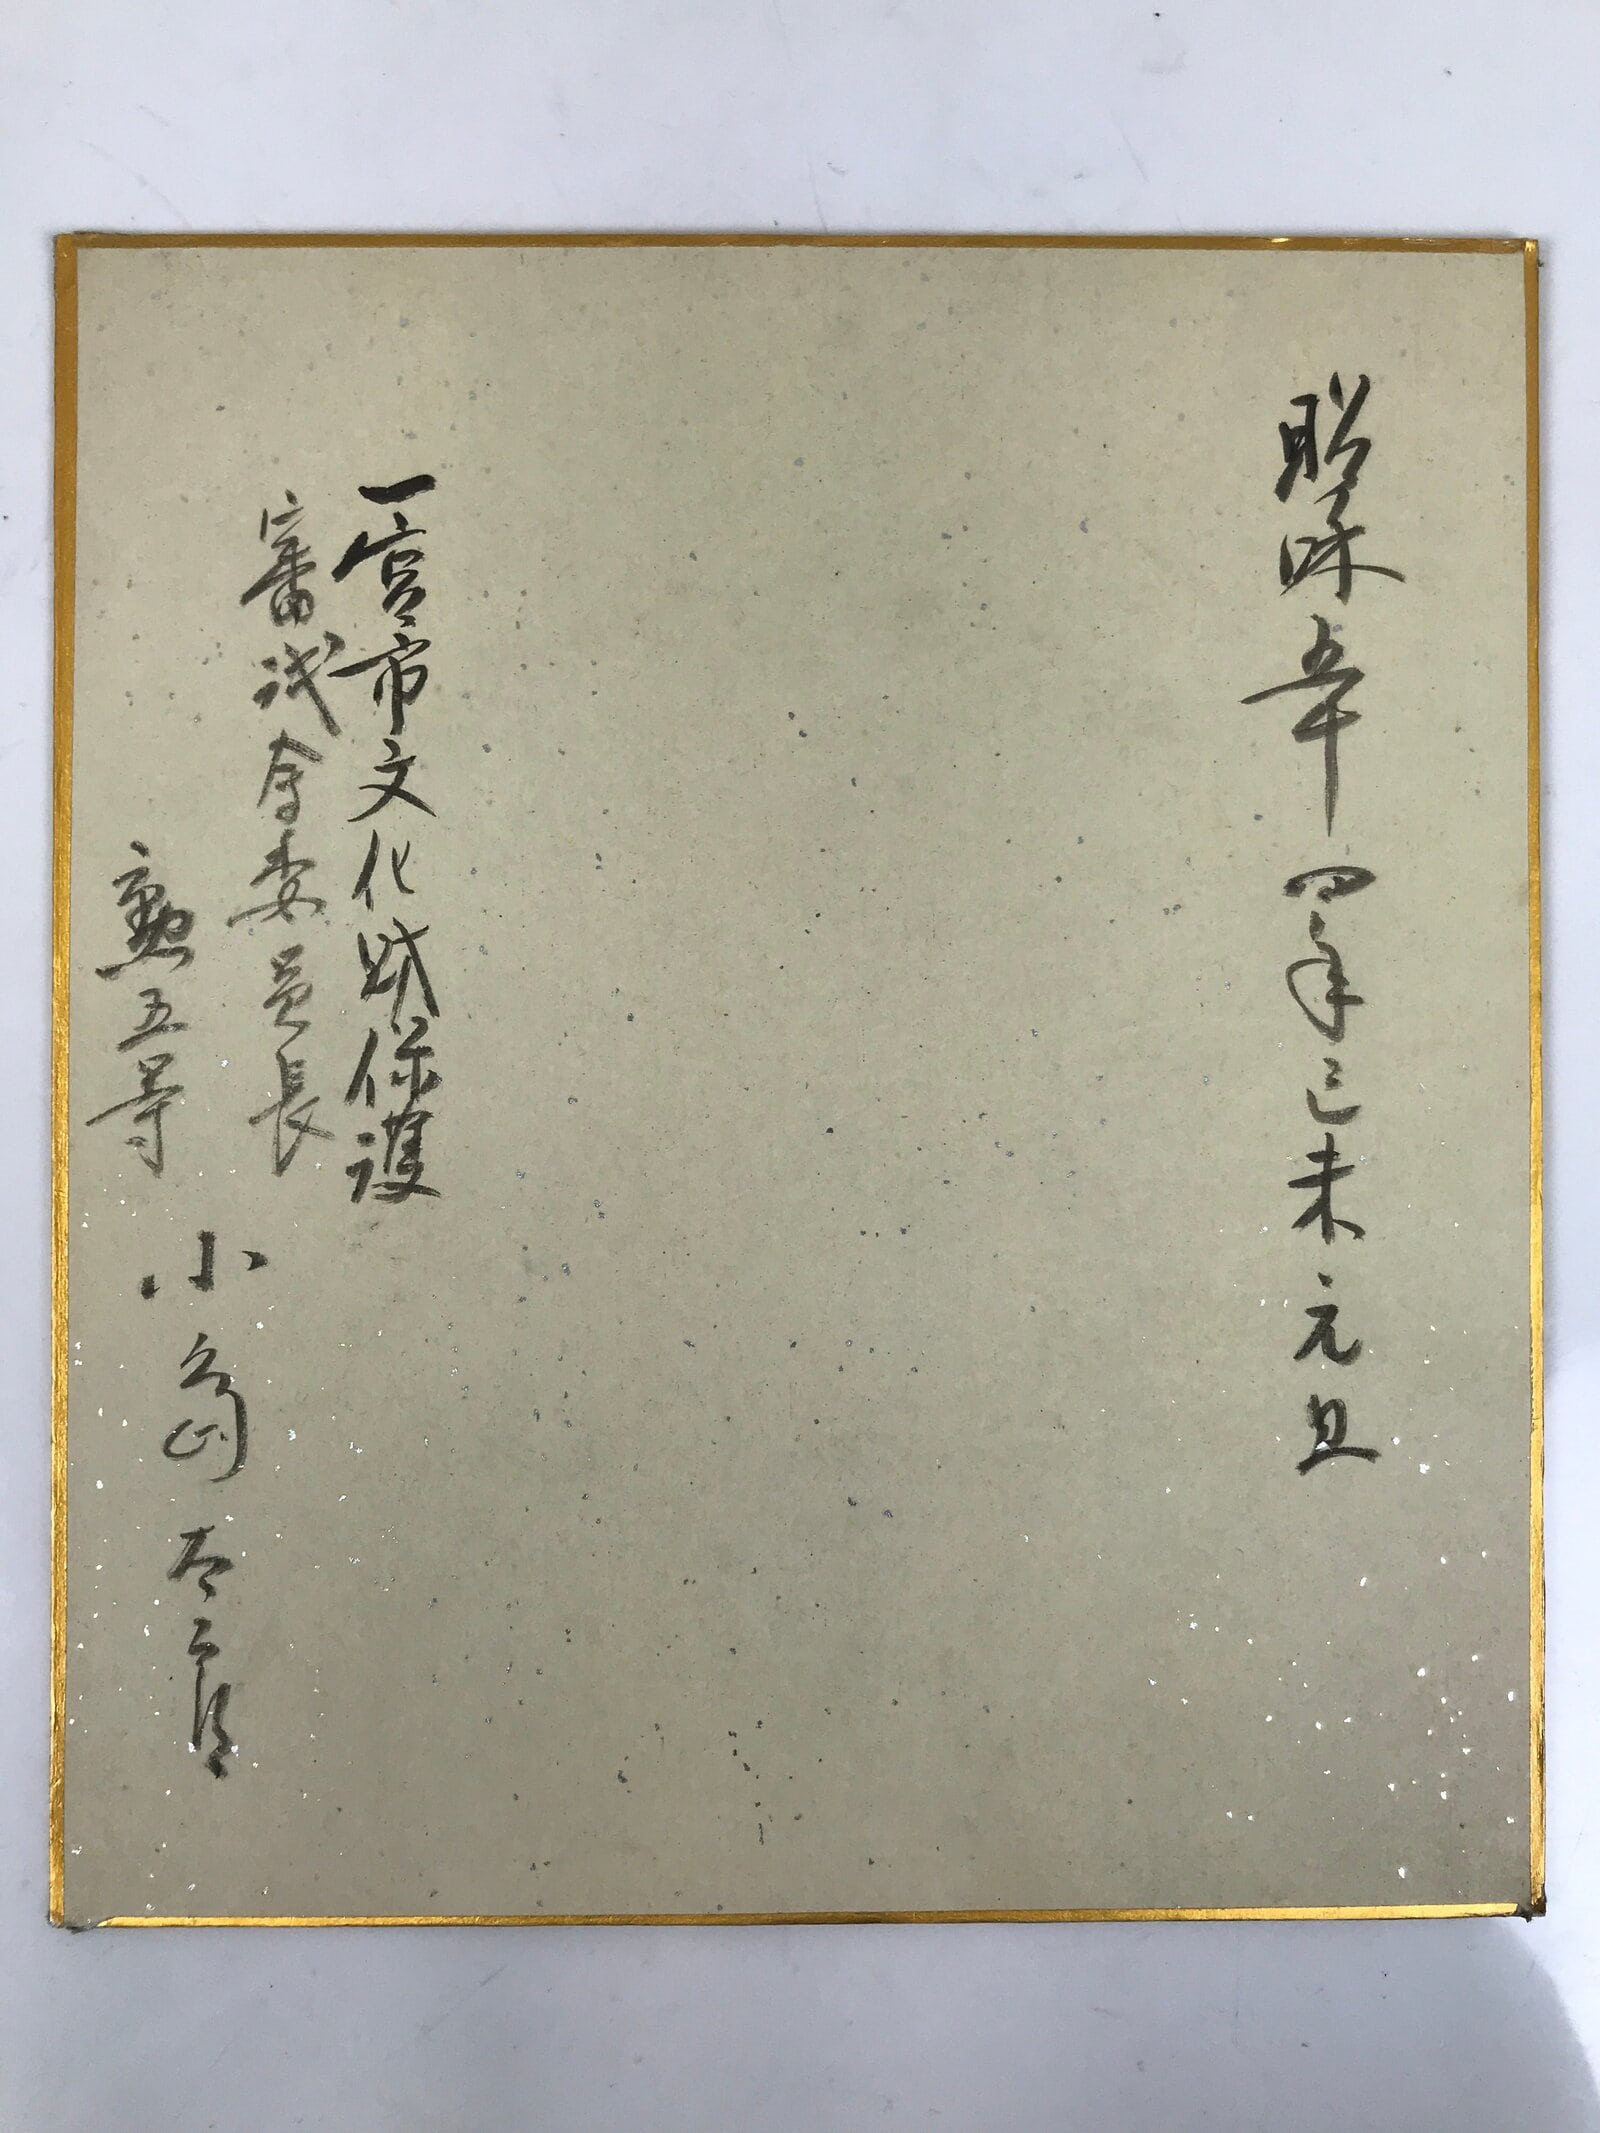 昭和五十四年己未元旦
一宮市文化財保護
審議会委員長
勲五等
小島太三郎